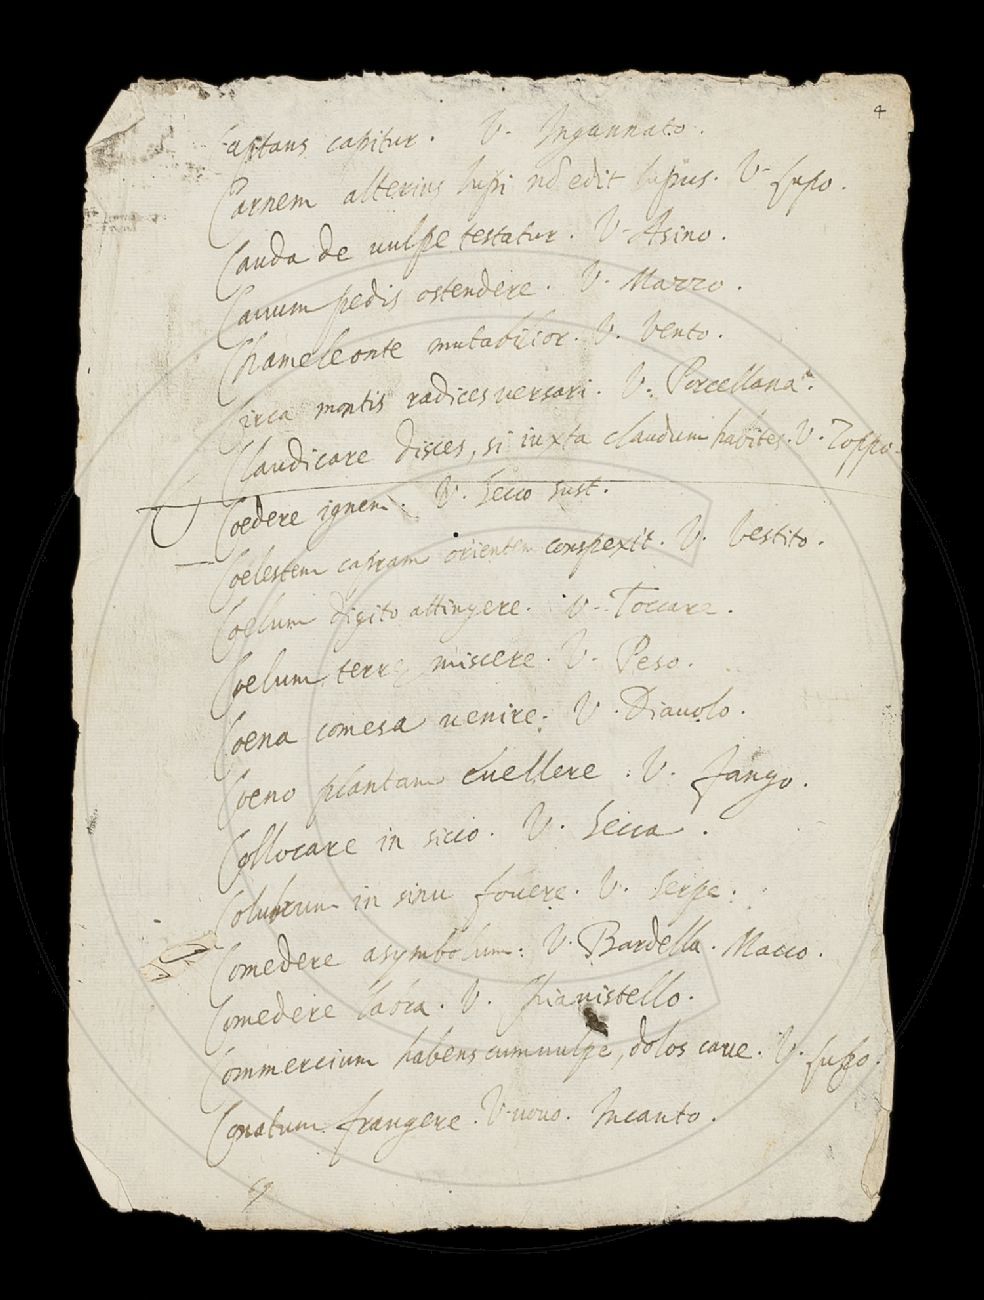 4
Captans capitur. V. Ingannato.
Carnem alterius lupi nō edit lupus. V. Lupo.
Cauda de uulpe testatur. V. Asino.
Cauum pedis ostendere. V. Mazzo.
Chameleonte mutabilior. V. Vento.
Circa montis radices uersari. V. Porcellana.
Claudicare disces, si iuxta claudum habites. V. Zoppo.
Coedere ignem. V. Secco sust.
Coelestem capram orientem conspexit. V. Vestito.
Coelum digito attingere. V. Toccare.
Coelum terrę miscere. V. Peso.
Coena comesa uenire. V. Diauolo.
Coeno plantam euellere. V. Fango.
Collocare in sicco. V. Secca.
Colubrum in sinu fouere. V. Serpe.
Comedere asymbolum. V. Bardella. Macco.
Comedere V. Chiauistello.
Commercium habens cum uulpe, dolos caue. V. Lupo.
frangere. V. uouo. Incanto.